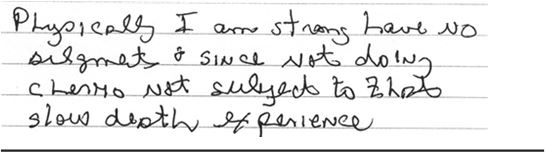 Physically I am strong have no
& since not doing
chemo not subject to that
slow death experience